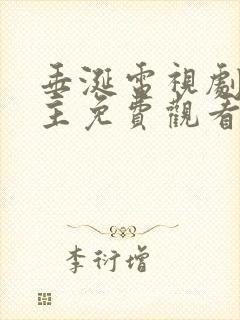 垂涎電視劇
主免費觀看
李衍增